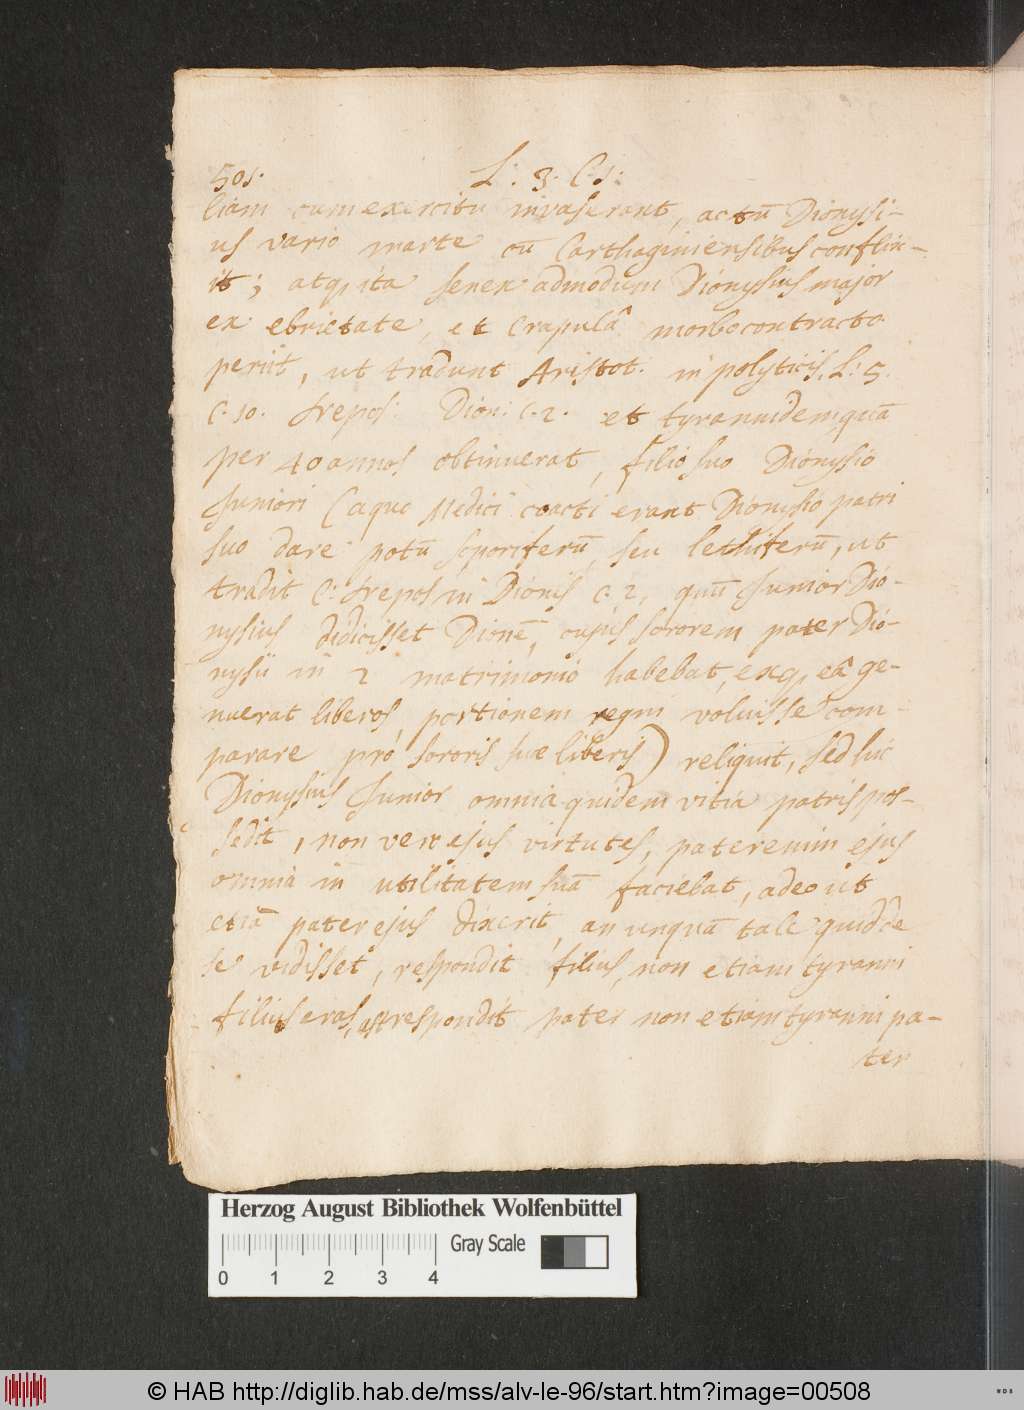 501.
L: 3. C. 1:
liam cum exercitu invaserant, actū Dionysi-
us vario marte cū Carthaginiensibus conflix-
it; atq, ita senex admodum Dionysius major
ex ebrietate, et Crapulâ morbo contracto
periit, ut tradunt Aristot. in polyticis. L: 5.
C. 10. Nepos: Dion: C. 2. et tyrannidem quā
per 40 annos obtinuerat, filio suo Dionysio
Juniori (a quo Medici coacti erant Dionysio patri
suo dare potū soporiferū, seu lethiferū, ut
tradit C: Nepos in Dionis C. 2, quū Junior Dio-
nysius didicisset Dionē, cujus sororem pater Dio-
nysii in 2 matrimonio habebat, exq, eâ ge-
nuerat liberos, portionem regni voluisse com-
parare pro sororis suæ liberis) reliquit, sed hic
Dionysius Junior omnia quidem vitia patris pos-
sedit, non vero ejus virtutes, pater enim ejus
omnia in utilitatem suā faciebat, adeo ut
etiā pater ejus dixerit, an unquā tale quid de
se vidisset, respondit filius, non etiam tyranni
filius eras, ast respondit pater non etiam tyranni pa-
ter
Herzog August Bibliothek Wolfenbüttel
Gray Scale
0 1 2 3 4
© HAB http://diglib.hab.de/mss/alv-le-96/start.htm?image=00508